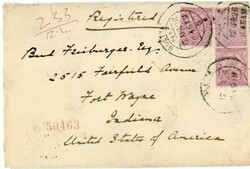 233
Registered
Bud Feiburger. Esq.
2515 Fairfield Avenue
Fort Wayne
Indiana
50463
United States of America